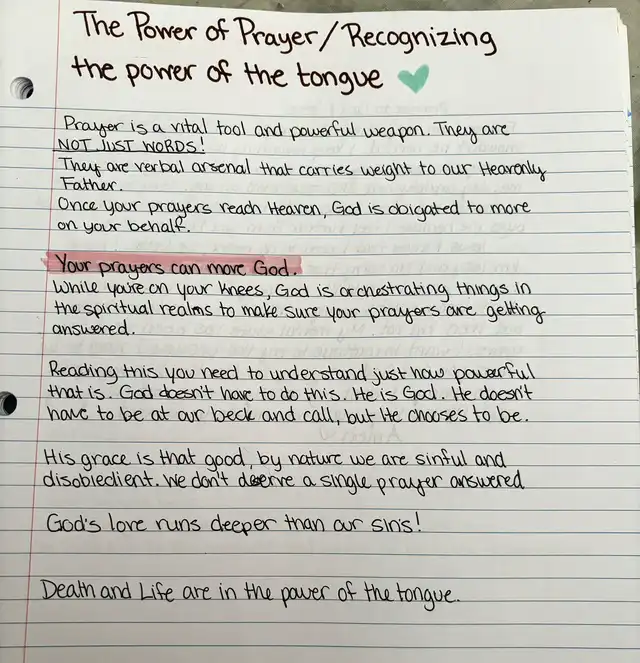 The Power of Prayer/Recognizing
the power of the tongue
Prayer is a vital tool and powerful weapon. They are
NOT JUST WORDS!
They are verbal arsenal that carries weight to our Heavenly
Father.
Once your prayers reach Heaven, God is obigated to more
on your behalf.
Your prayers can move God.
While you're on your knees, God is orchestrating things in
the spiritual realms to make sure your prayers are getting
answered.
Reading this you need to understand just how powerful
that is. God doesn't have to do this. He is God. He doesn't
have to be at our beck and call, but He chooses to be.
His grace is that good, by nature we are sinful and
disobiedient. We don't deserve a single prayer answered
God's love runs deeper than our sin's!
Death and Life are in the power of the tongue.